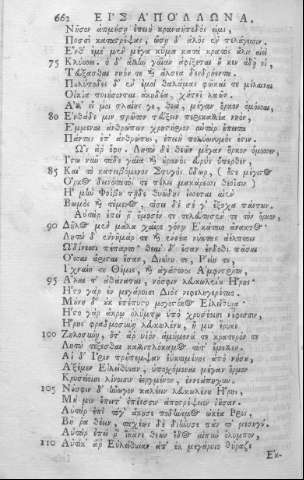 662 ΕΙΣ ΑΠΟΛΛΩΝΑ.
Νῆσον ἀτιμήσῃ ἐπειὴ κραναήπεδός εἰμι,
Ποσσὶ καταστρέψας, ὤσῃ δ' ἁλὸς ἐν πελάγεσσιν.
Ἔνθ' ἐμὲ μὲν μέγα κῦμα κατὰ κρατὸς ἅλις αἰεὶ
75 Κλύσσει. ὁ δ' ἄλλην γαῖαν ἀφίξεται ἥ κεν ἅδῃ οἱ,
Τεύξασθαι νηόν τε καὶ ἄλσεα δενδρήεντα.
Πολύποδες δ' ἐν ἐμοὶ θαλάμας φῶκαί τε μέλαιναι
Οἰκία ποιήσονται ἀκηδέα χήτεϊ λαῶν.
Ἀλλ' εἴ μοι τλαίης γε, θεὰ, μέγαν ὅρκον ὀμόσσαι,
80 Ἐνθάδε μιν πρῶτον τεύξειν περικαλλέα νηὸν,
Ἔμμεναι ἀνθρώπων χρηστήριον αὐτὰρ ἔπειτα
Πάντας ἐπ' ἀνθρώπους, ἐπειὴ πολυώνυμος ἔσται.
Ὣς ἄρ' ἔφη. Λητὼ δὲ θεῶν μέγαν ὅρκον ὄμοσσεν,
Ἴστω νῦν τάδε γαῖα καὶ οὐρανὸς εὐρὺς ὕπερθεν,
85 Καὶ τὸ κατειβόμενον Στυγὸς ὕδωρ, (ὅστε μέγιστος
Ὅρκος δεινότατός τε πέλει μακάρεσσι θεοῖσιν)
Ἦ μὴν Φοίβου τῇδε θυώδης ἔσσεται αἰεὶ
Βωμὸς καὶ τέμενος, τίσει δὲ σέ γ' ἔξοχα πάντων.
Αὐτὰρ ἐπεί ῥ' ὄμοσέν τε τελεύτησέν τε τὸν ὅρκον,
90 Δῆλος μὲν μάλα χαῖρε γόνῳ Ἑκάτοιο ἄνακτος·
Λητὼ δ' ἐννῆμάρ τε καὶ ἐννέα νύκτας ἀέλπτοις
Ὠδίνεσσι πέπαρτο· θεαὶ δ' ἔσαν ἔνδοθι πᾶσαι
Ὅσσαι ἄρισται ἔσαν, Διώνη τε, Ῥείη τε,
Ἰχναίη τε Θέμις, καὶ ἀγάστονος Ἀμφιτρίτη,
95 Ἄλλαι τ' ἀθάναται, νόσφιν λευκωλένου Ἥρης·
Ἧστο γὰρ ἐν μεγάροισι Διὸς νεφεληγερέταο.
Μούνη δ' οὐκ ἐπέπυστο μογοστόκος Εἰλείθυια·
Ἧστο γὰρ ἄκρῳ ὀλύμπῳ ὑπὸ χρυσέοισι νέφεσσιν,
Ἥρης φραδμοσύνης λευκωλένου, ἥ μιν ἔρυκεν
100 Ζηλοσύνῃ, ὅτ' ἄρ υἱὸν ἀμύμονά τε κρατερόν τε
Λητὼ τέξεσθαι καλλιπλόκαμος τότ' ἔμελλεν.
Αἱ δ' Ἶριν προὔπεμψαν ἐϋκτιμένης ἀπὸ νήσου,
Ἀξέμεν Εἰλείθυιαν, ὑποσχόμεναι μέγαν ὅρμον
Χρυσείοισι λίνοισιν ἐεργμένον, ἐννεάπηχυν.
105 Νόσφιν δ' ἤνωγον καλέειν λευκωλένου Ἥρης,
Μή μιν ἔπειτ' ἐπέεσσιν ἀποστρέψειεν ἰοῦσαν.
Αὐτὰρ ἐπεὶ τόγ' ἄκουσε ποδήνεμος ὠκέα Ἶρις,
Βῆ ῥα θέειν, ταχέως δὲ διήνυσε πᾶν τὸ μεσηγύ.
Αὐτὰρ ἐπεί ῥ' ἵκανε θεῶν ἕδος αἰπὺν ὄλυμπον,
110 Αὐτίκ' ἄρ Εἰλείθυιαν ἀπ' ἐκ μεγάροιο θύραζε
Ἐκ-